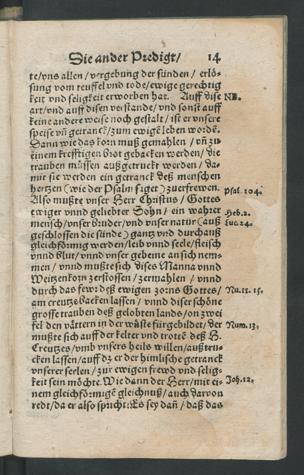 Die ander Predigt/ 14
te/vns allen/vergebung der sünden/erlö-
sung vom teuffel vnd tode/ewige gerechtig
keit vnd seligkeit erworben hat. Auff dise NB.
art/vnd auff disen verstande/vnd sonst auff
keine andere weise noch gestalt/ist er vnsere
speise vñ getranck/zum ewigẽ leben wordẽ.
Dann wie das korn muß gemahlen/vñ zu
einem krefftigen brot gebacken werden/die
trauben müssen außgetruckt werden/da
mit sie werden ein getranck deß menschen
hertzen (wie der Psalm saget) zuerfrewen. Psal. 104.
Also mußte vnser Herr Christus/Gottes
ewiger vnnd geliebter Sohn/ein wahrer Heb. 2.
mensch/vnser bruder/vnd vnser natur (auß Luc. 24.
geschlossen die sünde) gantz vnd durchauß
gleichförmig werden/leib vnnd seele/fleisch
vnnd blut/vnnd vnser gebeine an sich nem-
men/vnnd mußte sich dises Manna vnnd
Weitzenkorn zerstossen/zermahlen/vnnd
durch das fewr deß ewigen zorns Gottes/ Nu. 11. 15.
am creutze backen lassen/vnnd diser schöne
grosse trauben deß gelobten lands/on zwei
fel den vättern in der wüste fürgebildet/der Num. 13.
mußte sich auff der kelter vnd trotte deß H.
Creutzes/vmb vnsers heils willen/außtru-
cken lassen/auff dz er der himlische getranck
vnserer seelen/zur ewigen frewd vnd selig-
keit sein möchte. Wie dann der Herr/mit ei- Joh. 12.
nem gleichförmigẽ gleichnuß/auch darvon
redt/da er also spricht: Es sey dañ/daß das